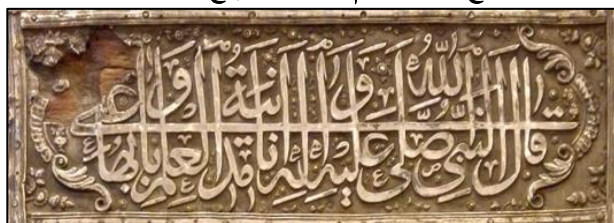 قال النبي صلى الله عليه واله انا مدينة العلم وعلى بابها